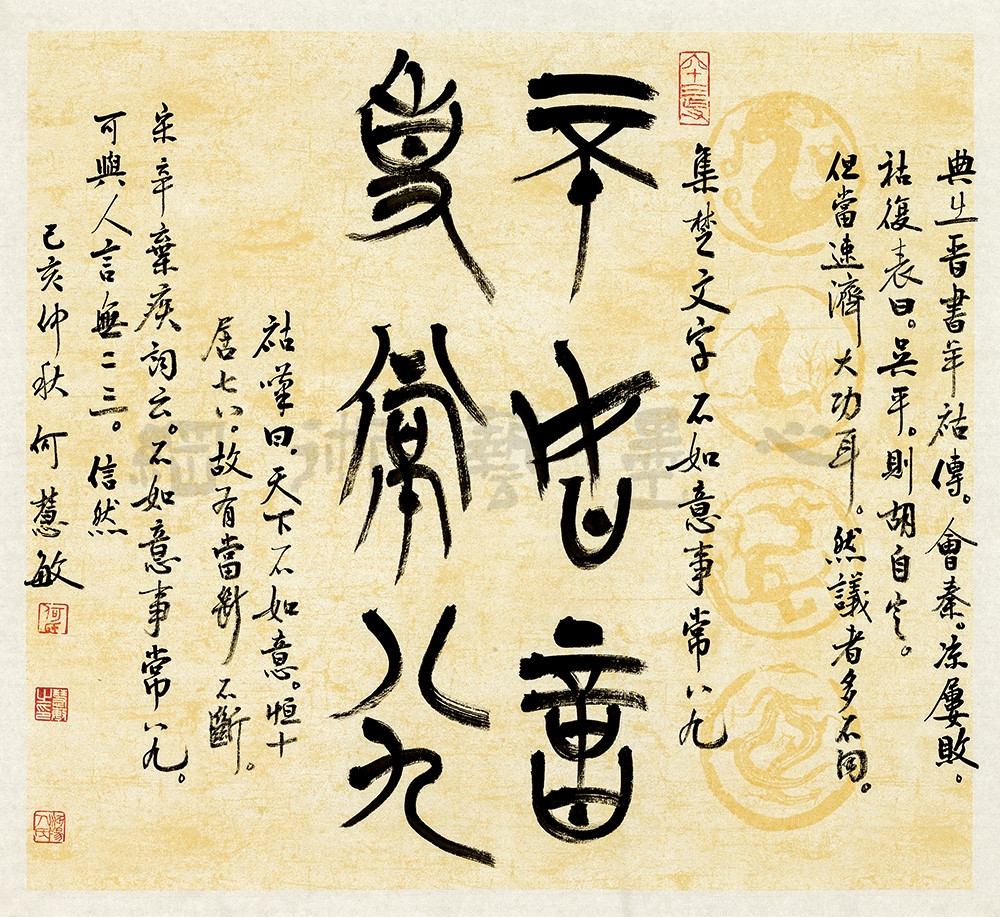 典出晋書羊祜傳。會秦。凉屢敗。
祜復表曰。吳平。則胡自定。
但當速濟大功耳。然議者多不同。
集楚文字不如意事常八九
不如意
事常八九
祜嘆曰。天下不如意。恒十
居七八。故有當斷不斷。
宋辛棄疾詞云。不如意事常八九。
可與人言無二三。信然
己亥仲秋何慧敏
何氏
慧敏之印
心墨藝術網